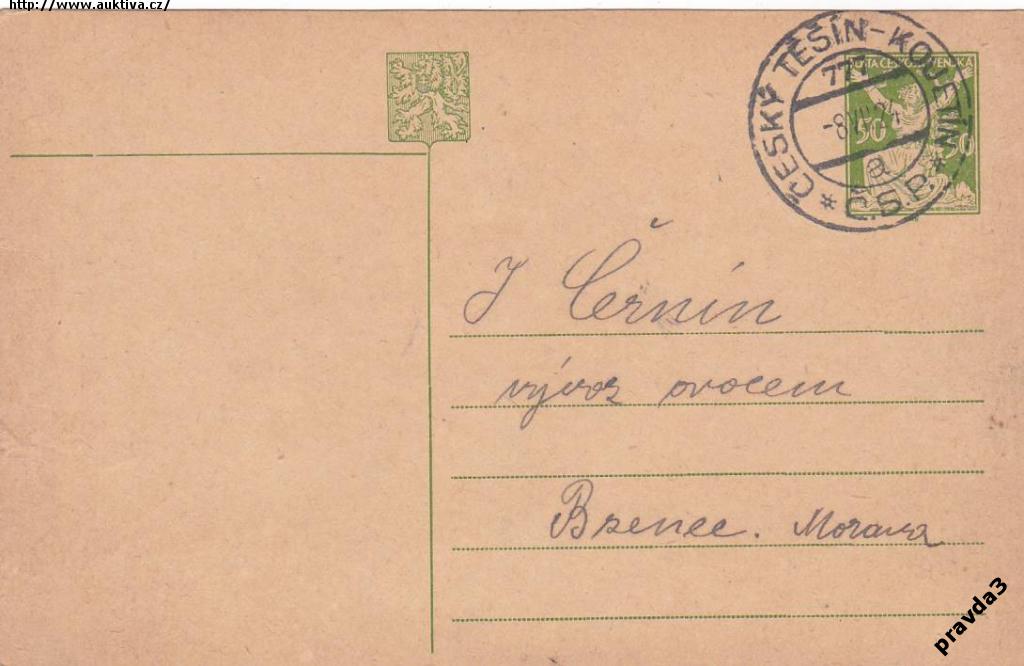 http://www.auktiva.cz/
ČESKÝ TĚŠÍN-KOJETÍN
POŠTA ČESKOSLOVENSKÁ
-8.VII.24
50 50
a
* Č.S.P. *
J Černín
vývoz ovocem
Bzenec. Morava
pravda3